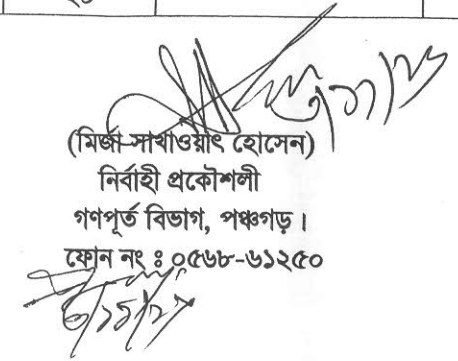 (মির্জা সাখাওয়াৎ হোসেন)
নির্বাহী প্রকৌশলী
গণপূর্ত বিভাগ, পঞ্চগড়।
ফোন নং ঃ ০৫৬৮-৬১২৫০